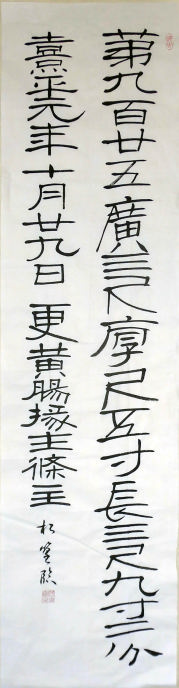 第九百廿五廣三尺厚尺五寸長三尺九寸二分
熹平元年十月廿九日 更黃腸掾王條主
臨